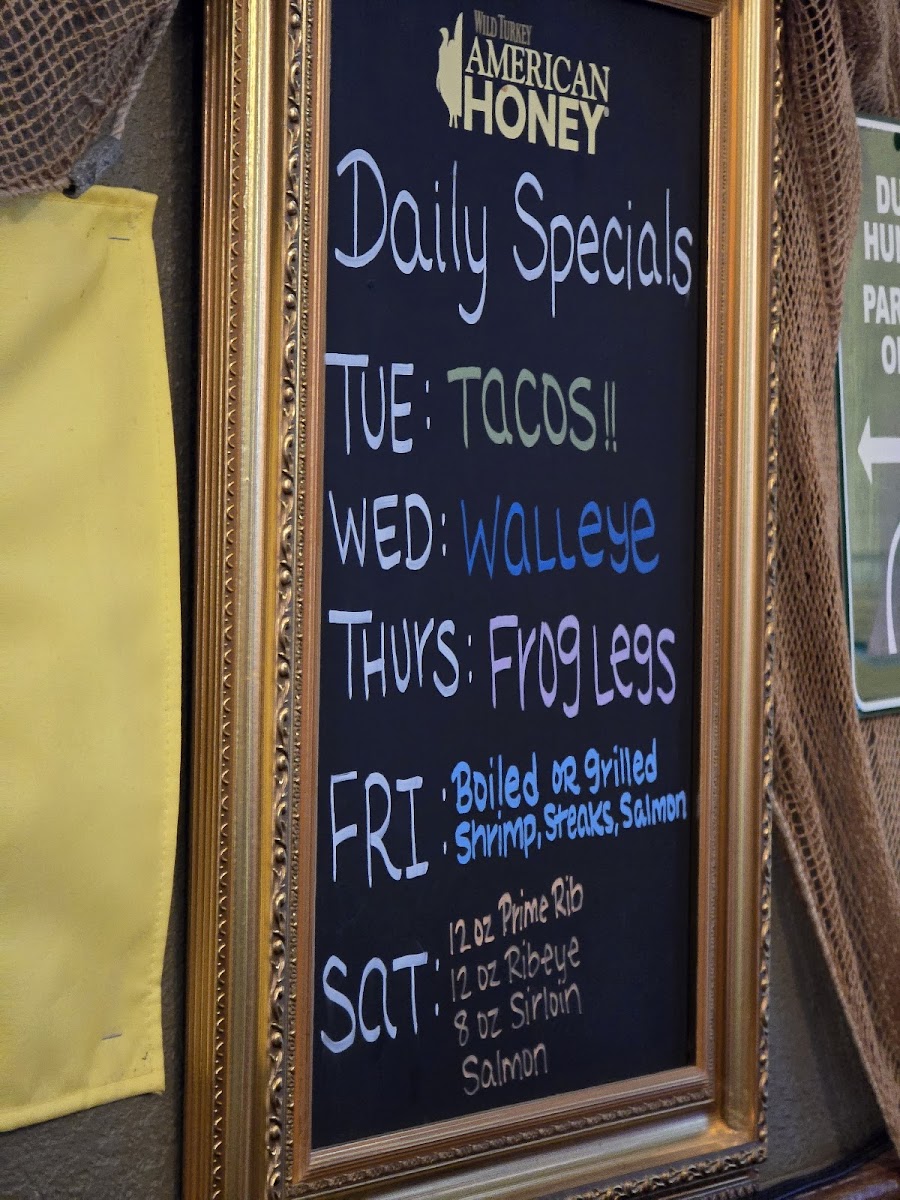 WILD TURKEY
AMERICAN
HONEY
Daily Specials
TUE: TACOS!!
WED: Walleye
THURS: Frog Legs
FRI: Boiled OR grilled
shrimp, steaks, Salmon
SAT: 12 oz Prime Rib
12 oz Ribeye
8 oz Sirloin
Salmon